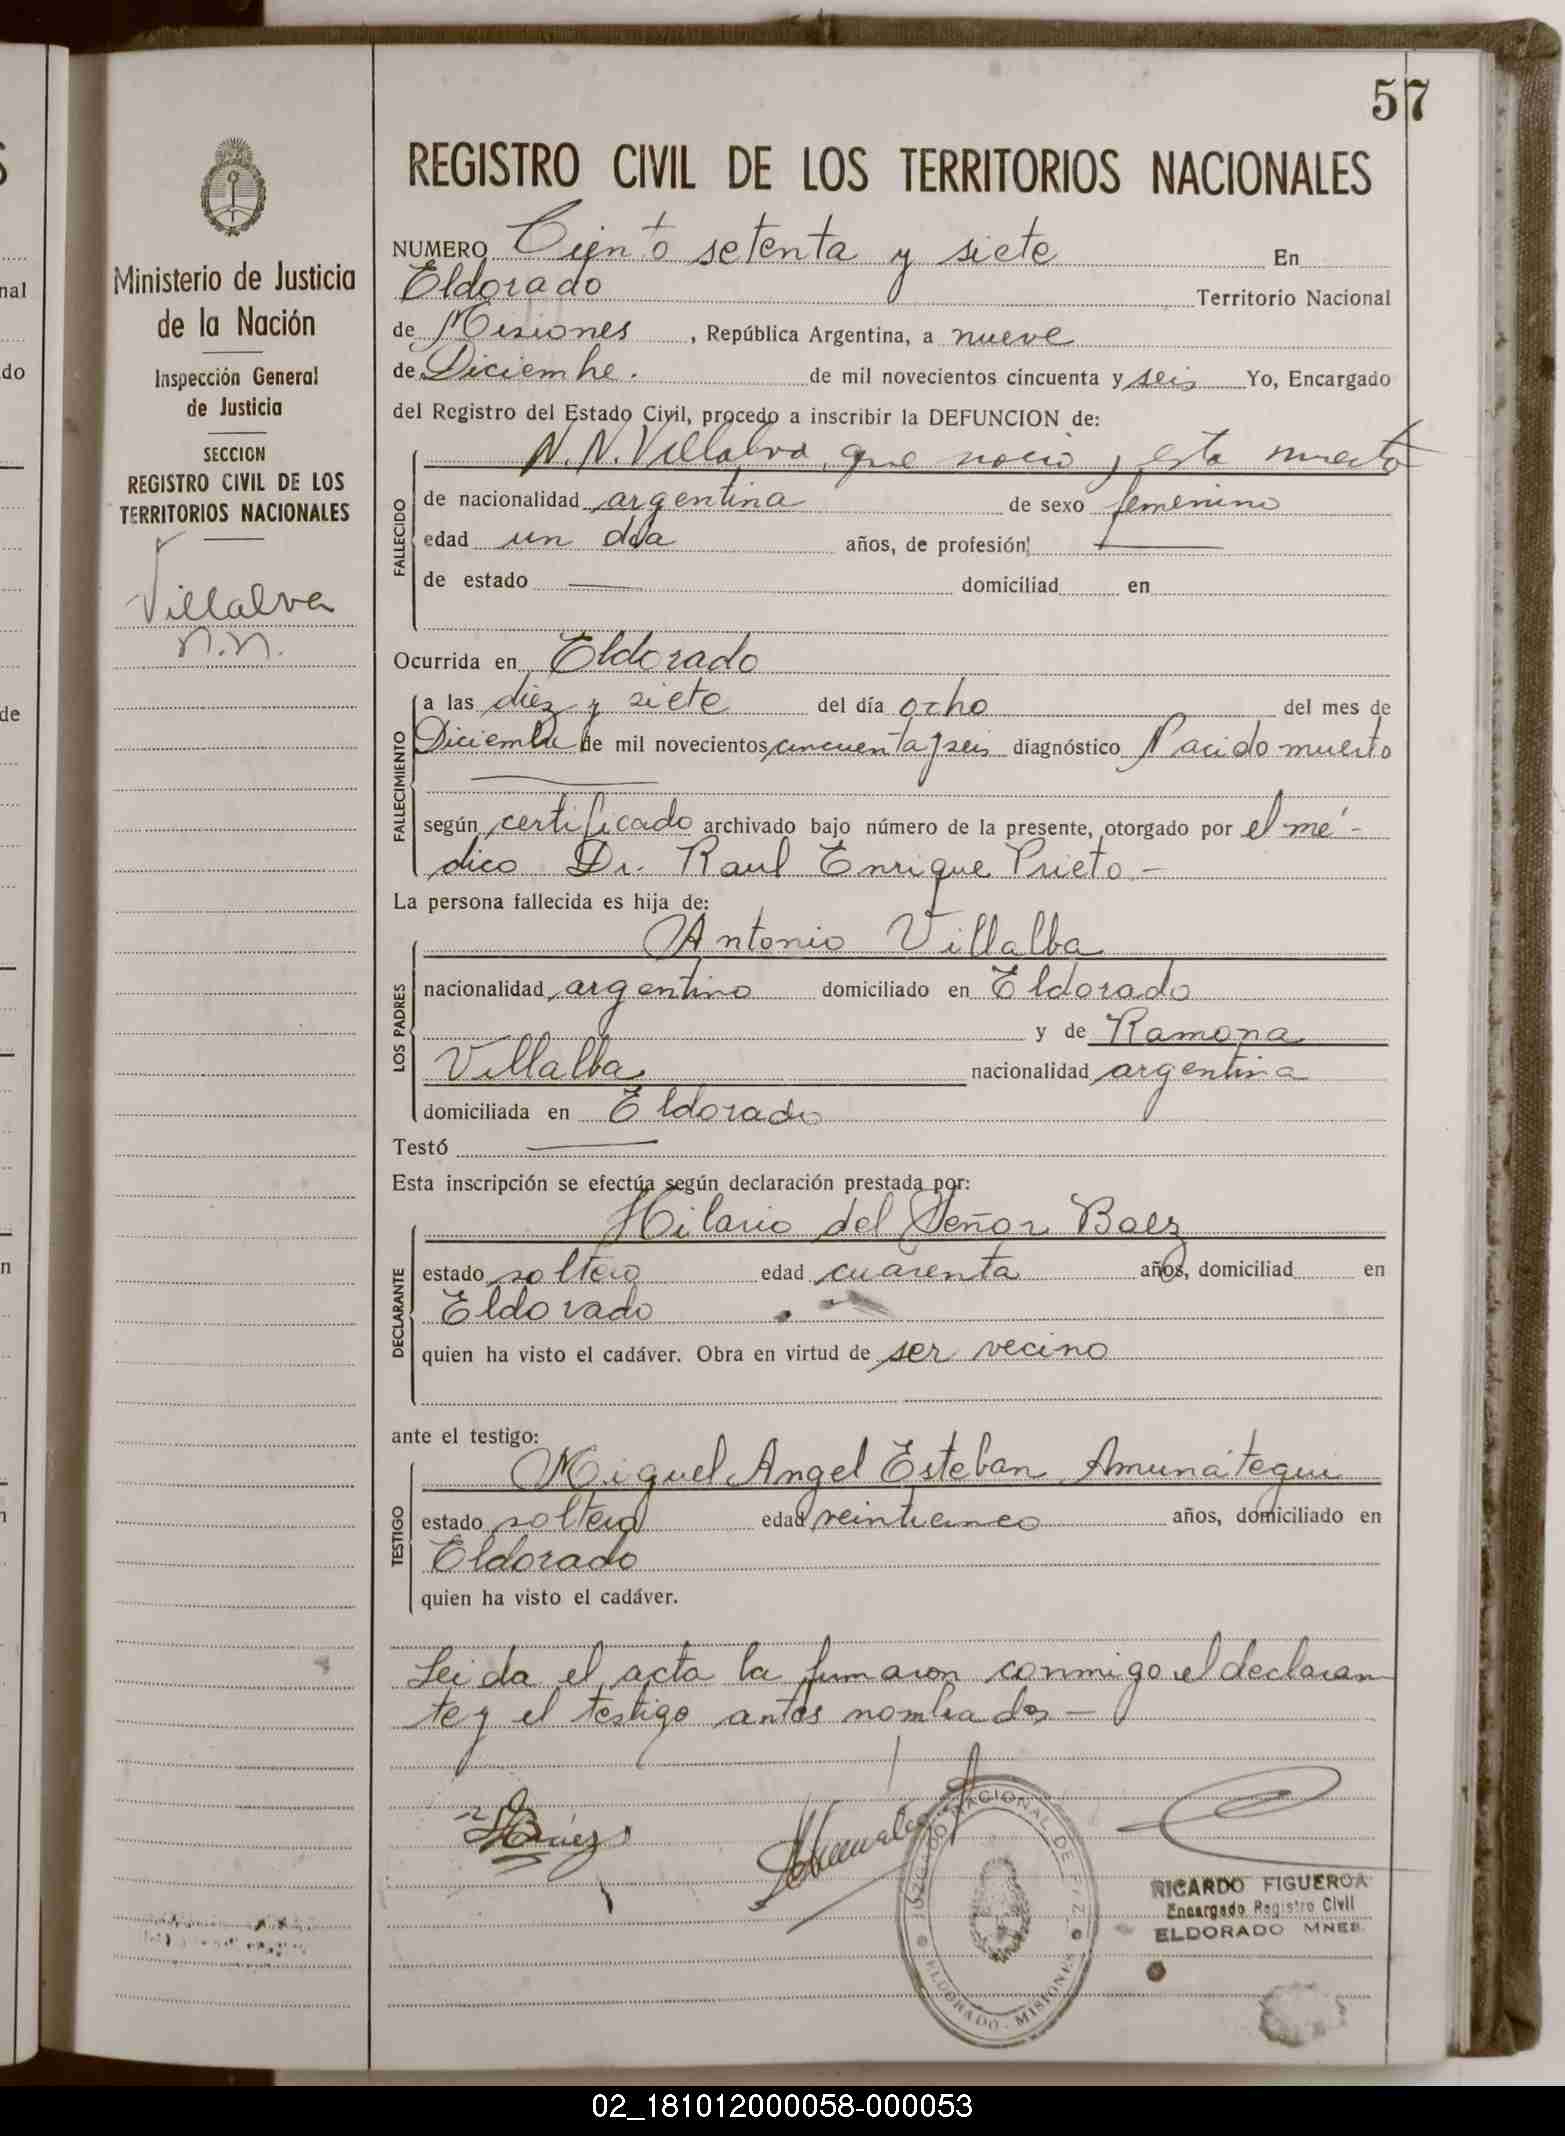 57
REGISTRO CIVIL DE LOS TERRITORIOS NACIONALES
Ministerio de Justicia
de la Nación
Inspección General
de Justicia
SECCION
REGISTRO CIVIL DE LOS
TERRITORIOS NACIONALES
Villalva
N.N.
NUMERO Ciento setenta y siete En
Eldorado Territorio Nacional
de Misiones, República Argentina, a nueve
de Diciembre. de mil novecientos cincuenta y seis Yo, Encargado
del Registro del Estado Civil, procedo a inscribir la DEFUNCION de:
N.N. Villalva, que nació y esta muerta
FALLECIDO
de nacionalidad argentina de sexo femenino
edad un día años, de profesión
de estado domiciliad en
Ocurrida en Eldorado
FALLECIMIENTO
a las diez y siete del día ocho del mes de
Diciembre de mil novecientos cincuenta y seis diagnóstico Nacido muerto
según certificado archivado bajo número de la presente, otorgado por el mé-
dico Dr. Raul Enrique Prieto.-
La persona fallecida es hija de:
LOS PADRES
Antonio Villalba
nacionalidad argentino domiciliado en Eldorado
y de Ramona
Villalba nacionalidad argentina
domiciliada en Eldorado
Testó
Esta inscripción se efectúa según declaración prestada por:
DECLARANTE
Hilario del Señor Baez
estado soltero edad cuarenta años, domiciliad en
Eldorado
quien ha visto el cadáver. Obra en virtud de ser vecino
ante el testigo:
TESTIGO
Miguel Angel Esteban Amunátegui
estado soltero edad veinticinco años, domiciliado en
Eldorado
quien ha visto el cadáver.
Leida el acta la firmaron conmigo el declaran
te y el testigo antes nombrados-
Báez
JUZGADO NACIONAL DE PAZ
ELDORADO - MISIONES
RICARDO FIGUEROA
Encargado Registro Civil
ELDORADO MNES.
02_181012000058-000053